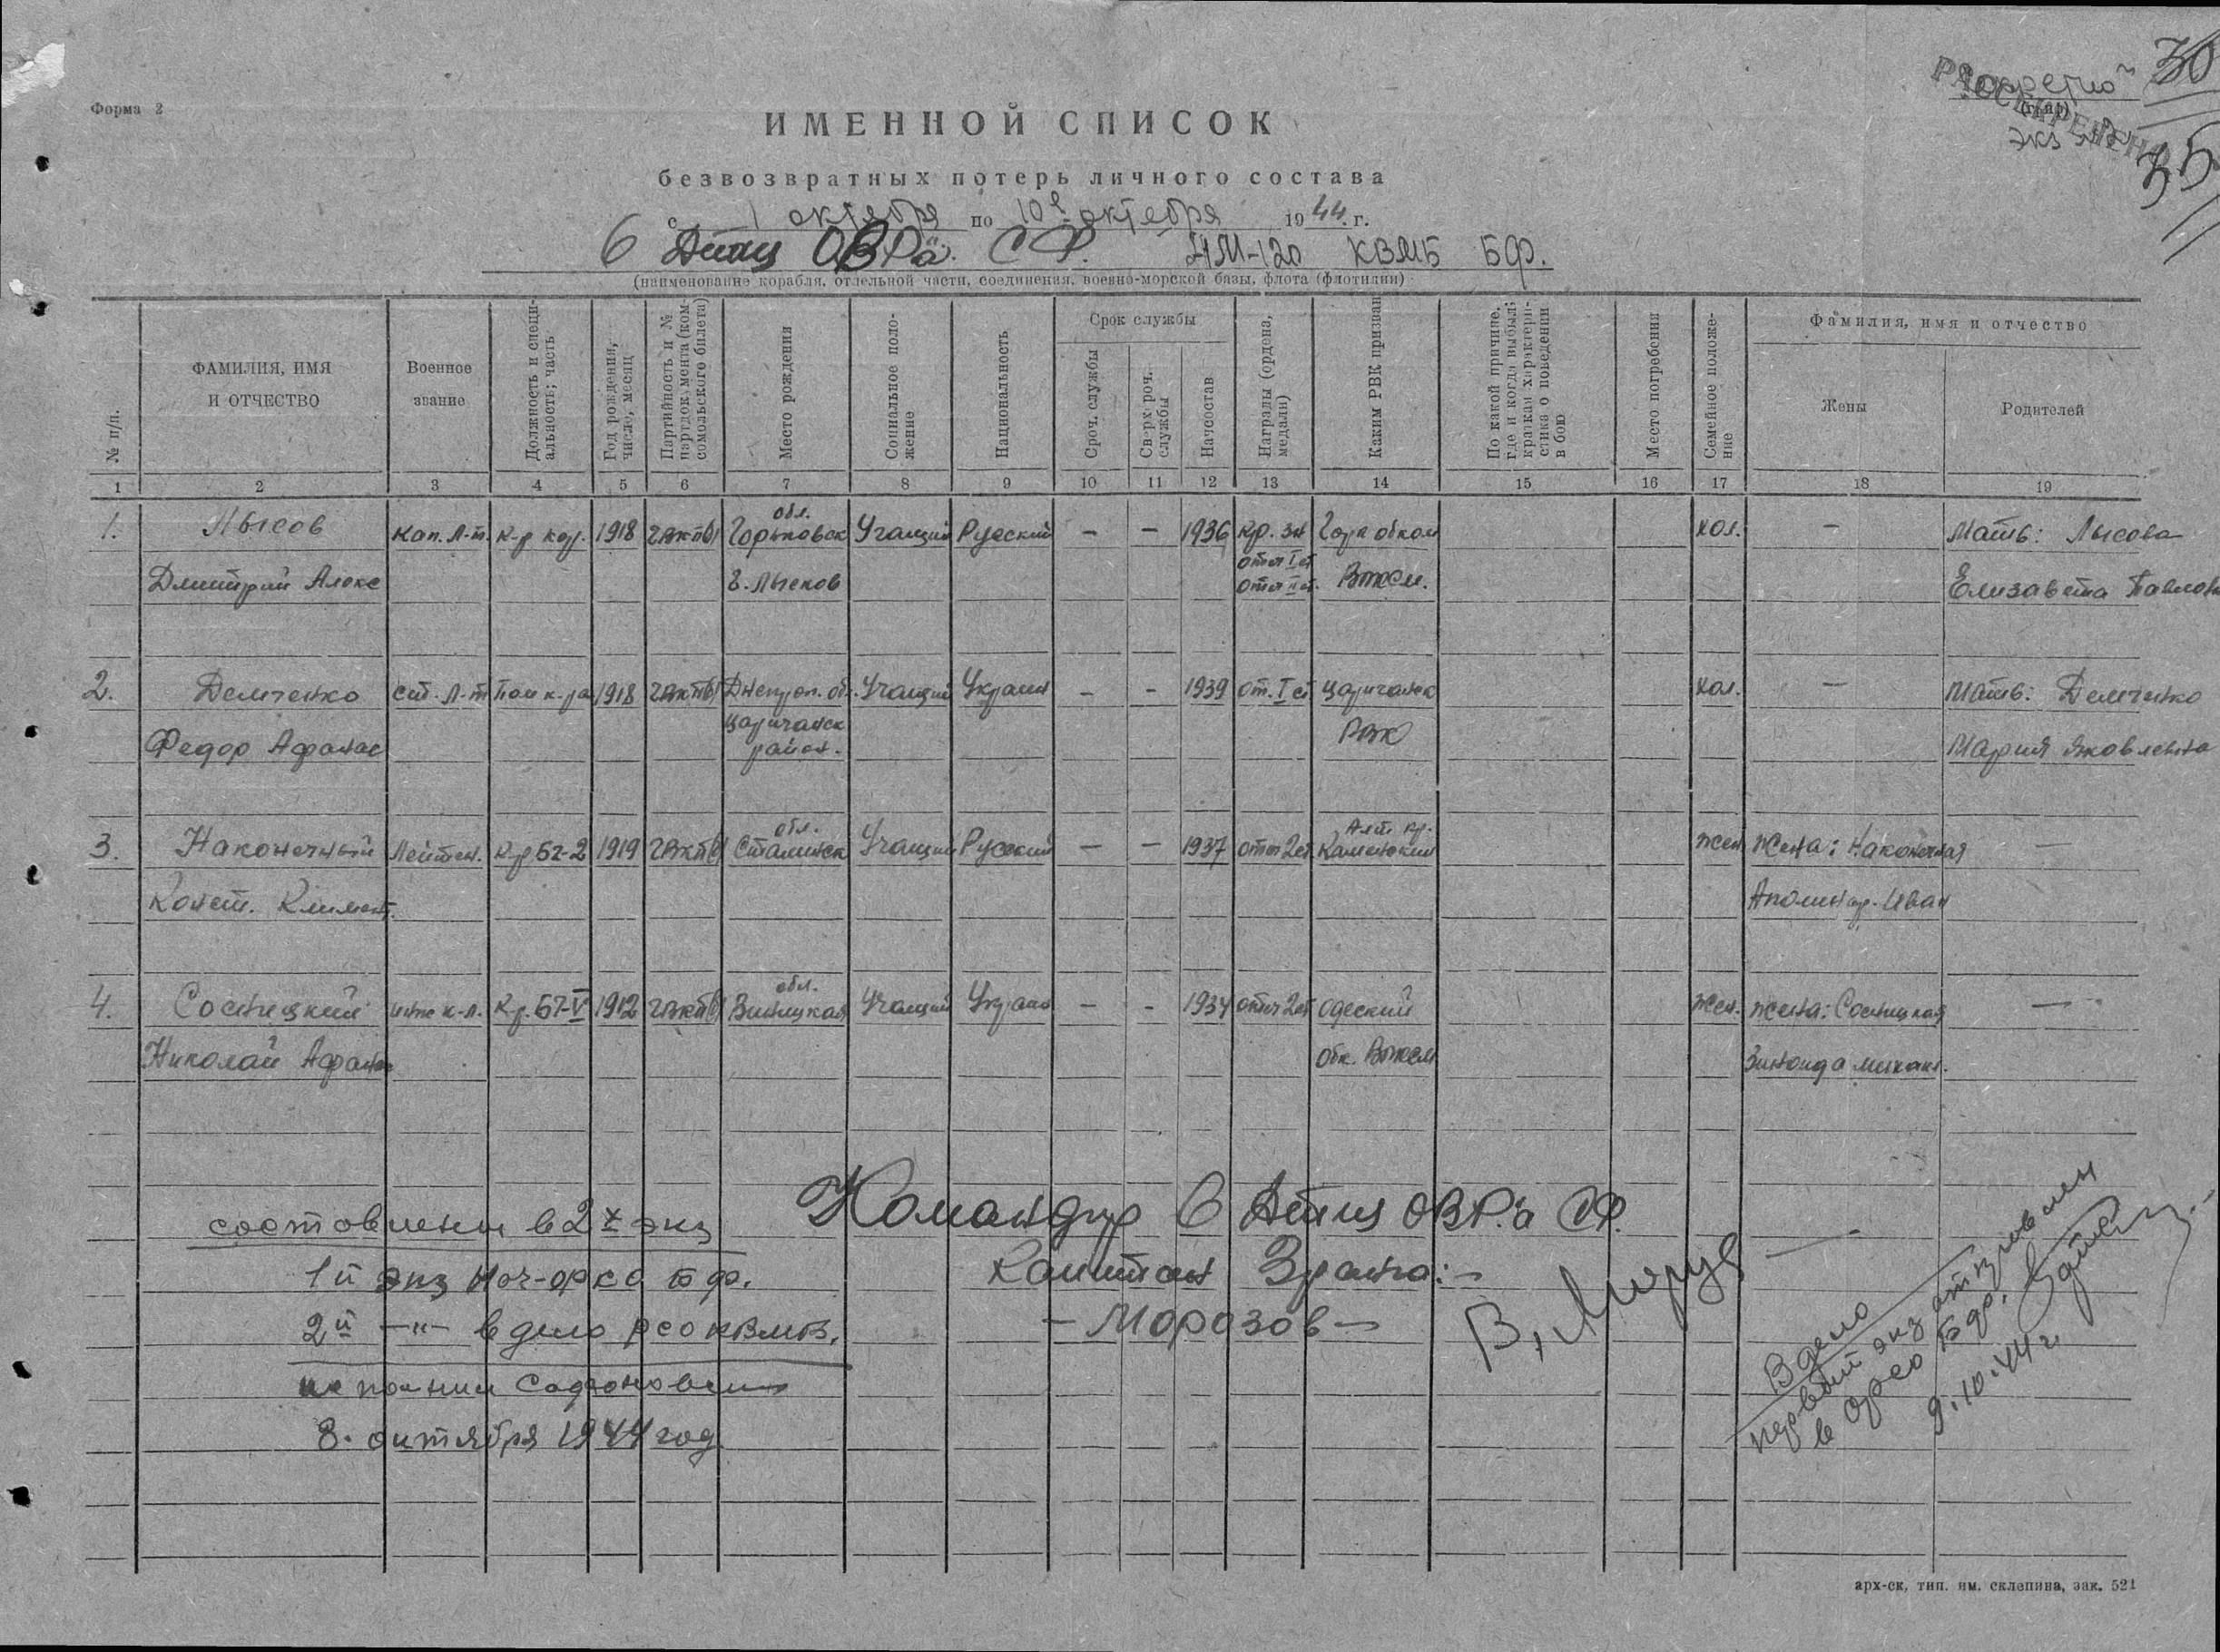 Форма 2
Секретно
РАССЕКРЕЧЕНО
30
35
экз №2
ИМЕННОЙ СПИСОК
безвозвратных потерь личного состава
с 1 октября по 10е октября 1944 г.
6 Дтщ ОВР'а СФ. ТМ-120 КВМБ БФ.
(наименование корабля, отдельной части, соединения, военно-морской базы, флота (флотилии)
№ п/п.
ФАМИЛИЯ, ИМЯ И ОТЧЕСТВО
Военное звание
Должность и специальность; часть
Год рождения, число, месяц
Партийность и № партдокумента (комсомольского билета)
Место рождения
Социальное положение
Национальность
Срок службы
Сроч. службы
Сверхсроч. службы
Начсостав
Награды (ордена, медали)
Каким РВК призван
По какой причине, где и когда выбыл; краткая характеристика о поведении в бою
Место погребения
Семейное положение
Фамилия, имя и отчество
Жены
Родителей
1 2 3 4 5 6 7 8 9 10 11 12 13 14 15 16 17 18 19
1. Лысов кап. л-т. к-р кор. 1918 ЧВКП(б) обл. Горьковск Учащий Русский — — 1936 кр. зн Горк обком хол. — Мать: Лысова
Дмитрий Алекс г. Лысков отеч I ст отеч II ст. ВЛКСМ. Елизавета Павловн
2. Демченко ст. л-т Пом к-ра 1918 ЧВКП(б) Днепроп. обл. Учащий Украин — — 1939 от. I ст Царичанск хол. — Мать: Демченко
Федор Афанас Царичанск район. РВК Мария Яковлевна
3. Наконечный Лейтен. К-р БЧ-2 1919 ЧВКП(б) обл. Сталинск Учащий Русский — — 1937 отеч 2ст Алт кр. Каменский жен Жена: Наконечная —
Конст. Климент. Аполинар. Иван
4. Сосницкий инж к-л. К-р. БЧ-V 1912 ЧВКП(б) обл. Виницкая Учащий Украин — — 1934 отеч 2ст Одеский жен. жена: Сосницкая —
Николай Афанас обк. ВЛКСМ Зинаида михаил.
составлен в 2х экз
1й экз Нач-ОРСО БФ.
2й —"— в дело РСО КВМБ.
исполнил Сафоновелш
8. октября 1944 год.
Командир 6 Дтщ ОВР'а СФ.
Капитан 3 ранга:-
- Морозов -
В дело
первый экз отправлен
в ОРСО БФ.
9.10.44 г.
арх-ск, тип. им. склепина, зак. 521